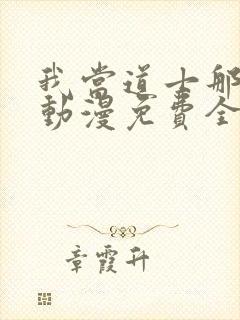 我當道士那
動漫免費全
章霞升